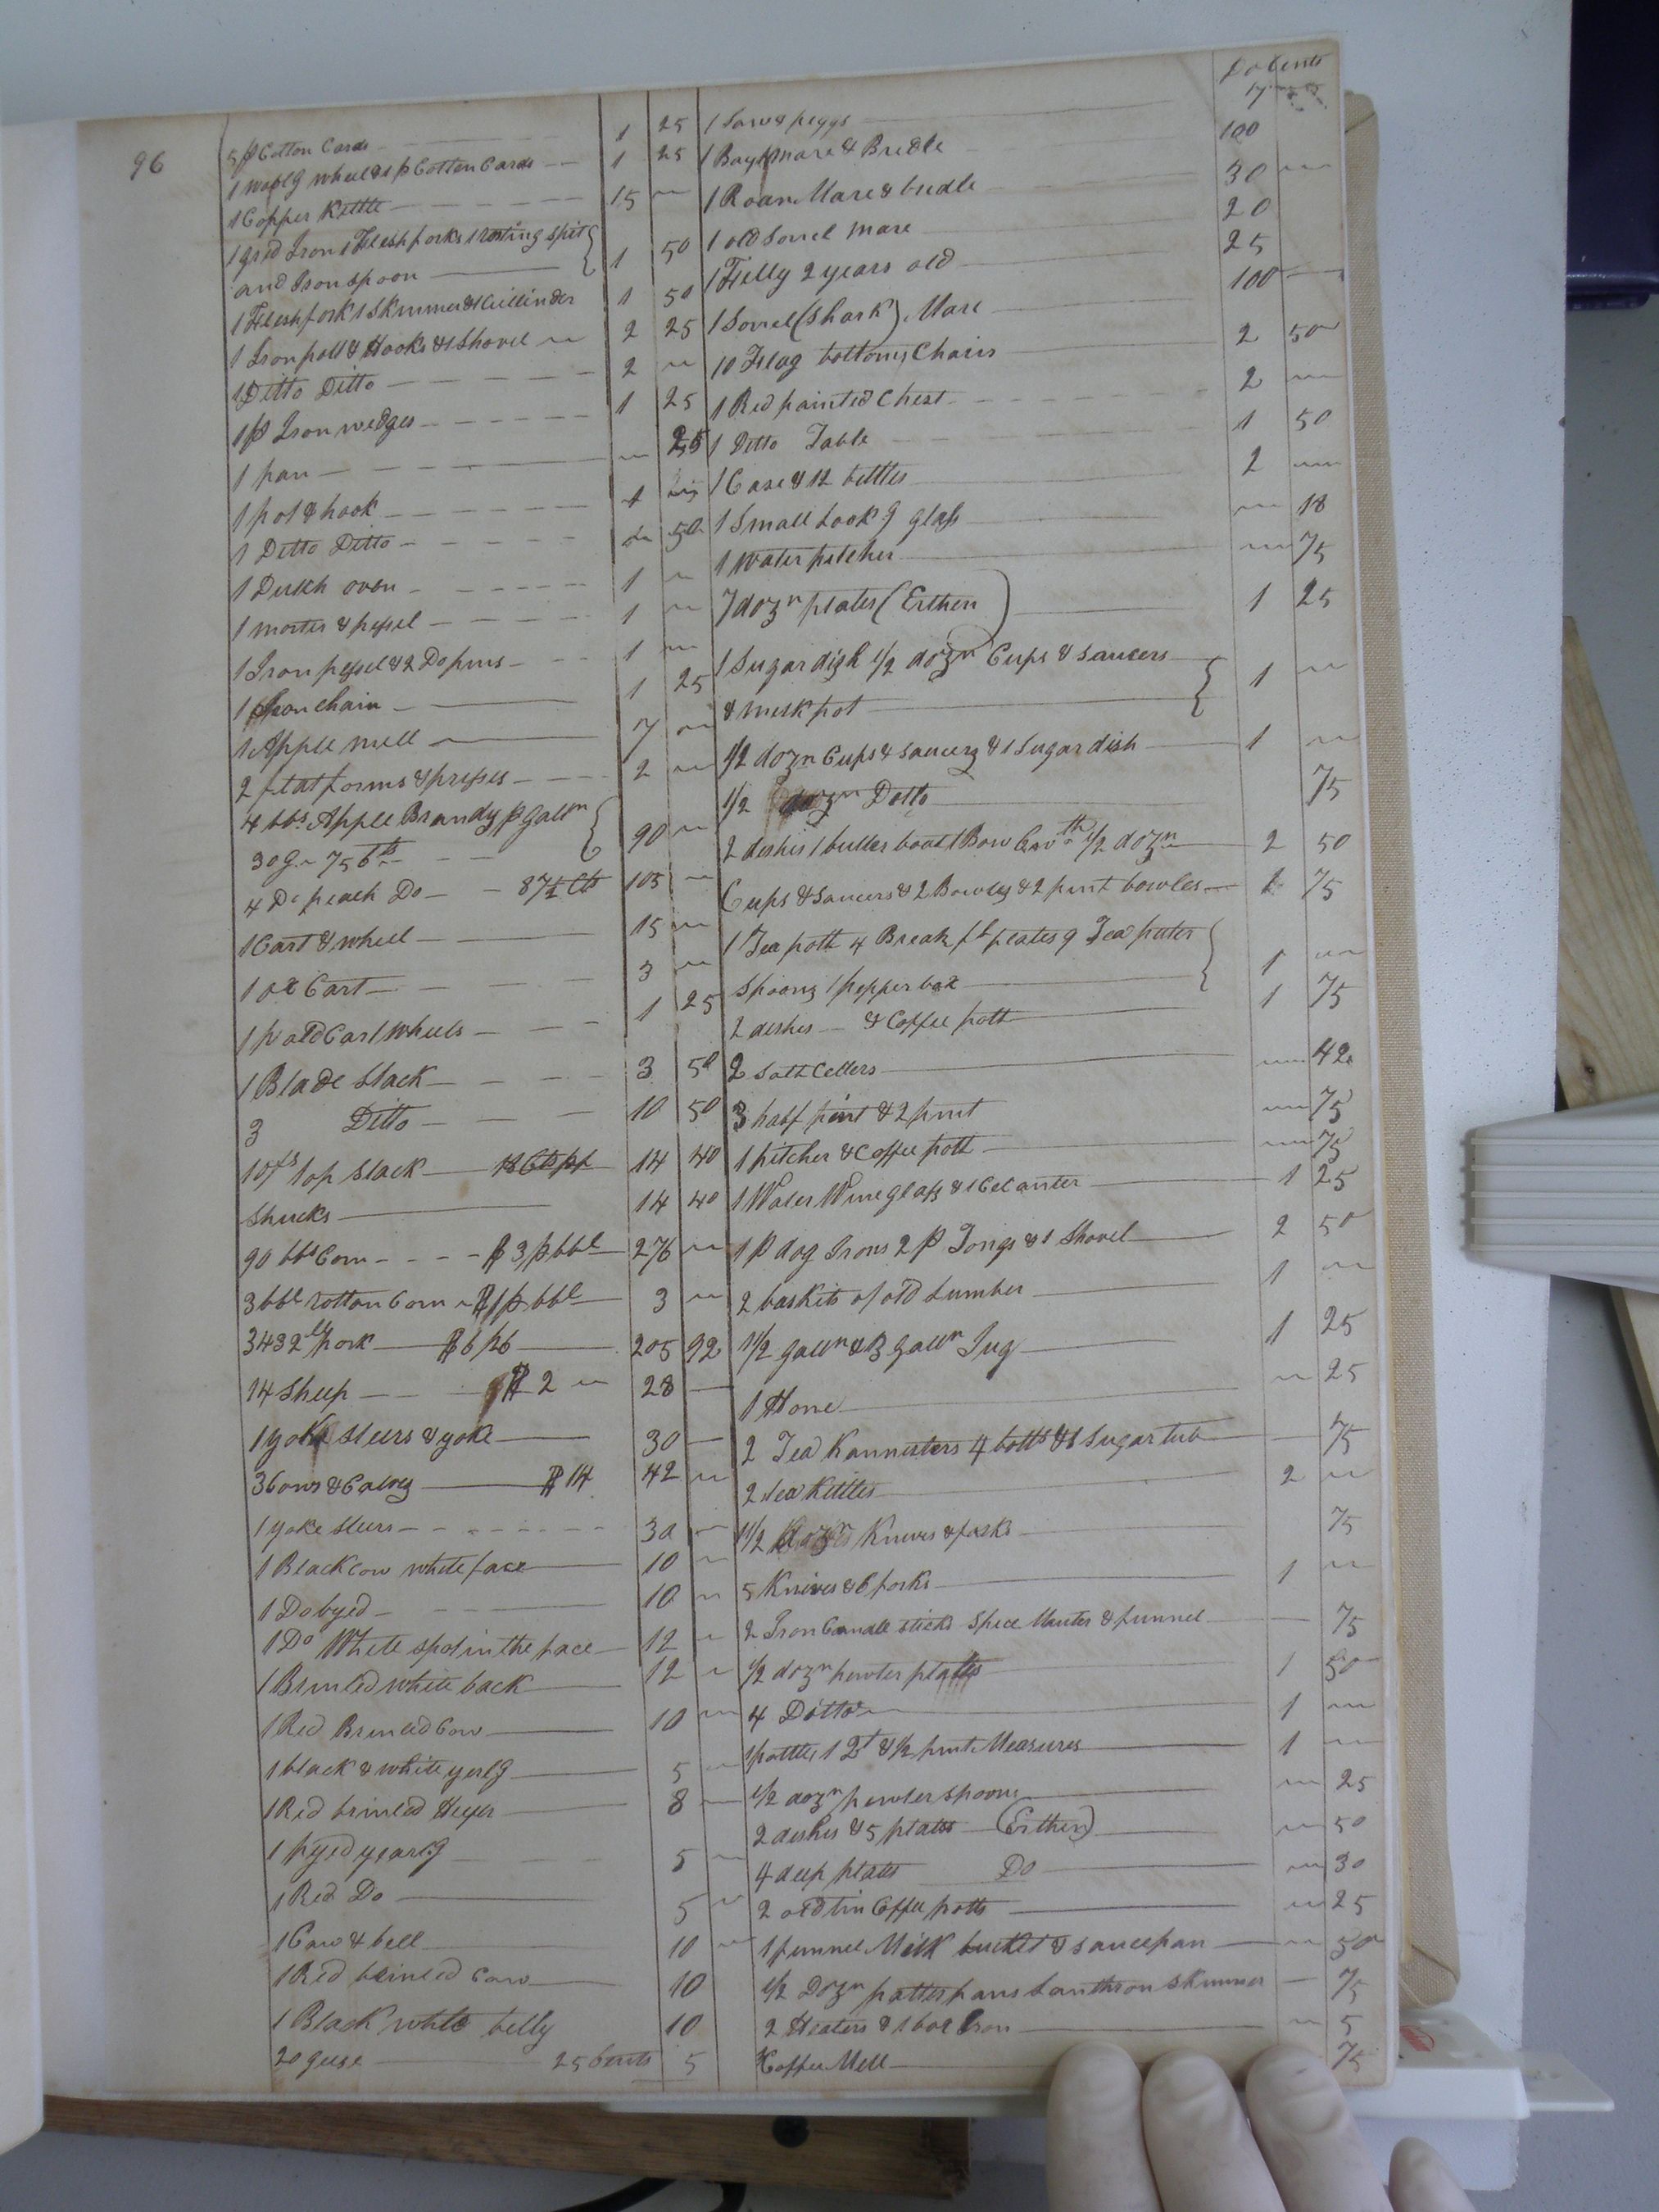 96
5 p Cotton Cards 1 25
1 Woolg Wheel & 1 p Cotton Cards 1 25
1 Copper Kettle 15
1 grid Iron 1 Flesh forks 1 roting Spit
and Iron spoon 1 50
1 Flesh fork 1 Skimmer & 1 Cullinder 1 50
1 Iron pott & Hooks & 1 Shovel 2 25
1 Ditto Ditto 2
1 p Iron wedges 1 25
1 pan 25
1 pot & hook 1
1 Ditto Ditto 50
1 Dutch oven 1
1 morter & pessel 1
1 Iron pessel & 2 Do pins 1
1 Iron Chain 1 25
1 Apple mill 7
2 flatforms & presses 2
4 bbs Apple Brandy p Galln
30 g 75 Cts 90
4 Do peach Do 87½ Cts 105
1 Cart & wheel 15
1 ox Cart 3
1 p old Cart Wheels 1 25
1 Blade Stack 3 50
3 Ditto 10 50
10 fts top Stack 14 40
Shucks 14 40
90 bbs Corn $3 p bbl 276
3 bbl rotton Corn $1 p bbl 3
3432 lb pork $6 p 205 92
14 Sheep $2 28
1 yoke steers & yoke 30
3 Cows & Calves $14 42
1 yoke steers 30
1 Black Cow white face 10
1 Do byed 10
1 Do White spot in the face 12
1 Brinled white back 12
1 Red Brinled Cow 10
1 black & white yerlg 5
1 Red brinled Heyer 8
1 pyed yearlg 5
1 Red Do 5
1 Cow & bell 10
1 Red brinled Cow 10
1 Black white belly 10
20 geese 25 Cents 5
Do Cents
1 Saw & peggs 17
1 Bay Mare & Bredle 100
1 Roan Mare & bredle 30
1 old Sorrel mare 20
1 Filly 2 years old 25
1 Sorrel (Shark) Mare 100
10 Flag bottom Chairs 2 50
1 Red painted Chest 2
1 Ditto Table 1 50
1 Case & 12 bottles 2
1 Small Lookg glass 18
1 Water pitcher 75
7 dozn plates (Erthen) 1 25
1 Sugar dish 1/2 dozn Cups & Saucers
& milk pot 1
1/2 dozn Cups & Saucers & 1 Sugar dish 1
1/2 dozn Ditto 75
2 dishes 1 butter boat 1 Bow 1/2 dozn 2 50
Cups & Saucers & 2 Bowles & 2 pint bowles 2 75
1 Tea pott 4 Breakft plates 9 Tea puter
Spoons 1 pepper box 1
2 dishes & Coffee pott 1 75
2 Salt Cellers 42
3 half pint & 2 pint 75
1 pitcher & Coffee pott 75
1 Water Wine glass & 1 Decanter 1 25
1 p dog Irons 2 p Tongs & 1 Shovel 2 50
2 baskits of old Lumber 1
1 1/2 galln & 3 galln Jug 1 25
1 Hone 25
2 Tea Kannisters 4 botts & 1 Sugar tub 75
2 tea Kittles 2
1 1/2 dozn Knives & forks 75
5 Knives & 6 forks 1
2 Iron Candle sticks Spice Morter & funnel 75
1/2 dozn pewter plates 1 50
4 Ditto 1
1 pottle 1 Qt & 1/2 pint Measures 1
1/2 dozn pewter spoons 25
2 dishes & 5 plates (Erthen) 50
4 deep plates Do 30
2 old tin Coffee potts 25
1 funnel Milk bucket & saucepan 50
1/2 Dozn patterpans Lanthron Skimmer 75
2 Heaters & 1 box Iron 5
1 Coffee Mill 75